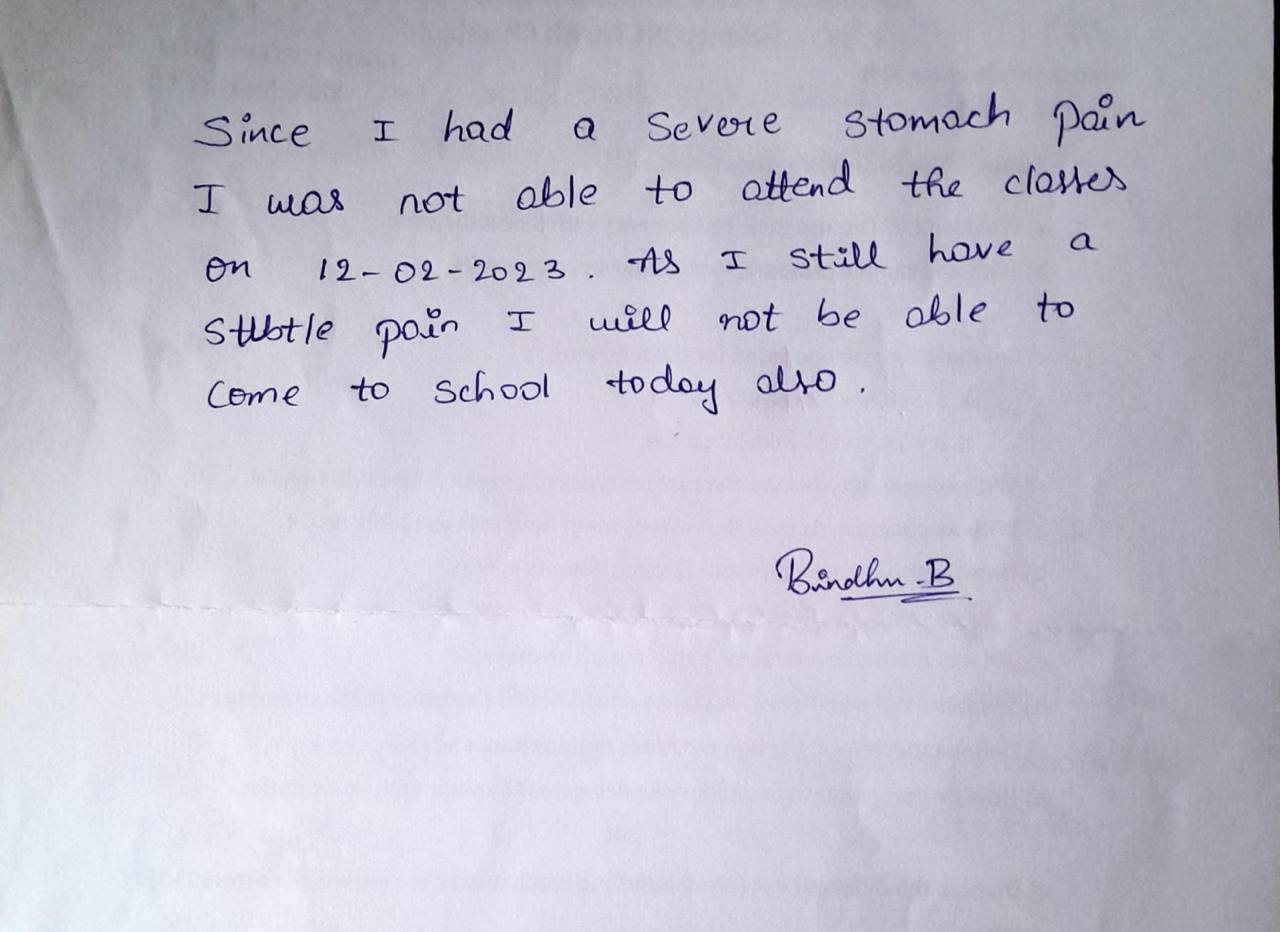 Since I had a severe stomach pain
I was not able to attend the classes
on 12-02-2023. As I still have a
stubtle pain I will not be able to
come to school today also.
Bindhu-B